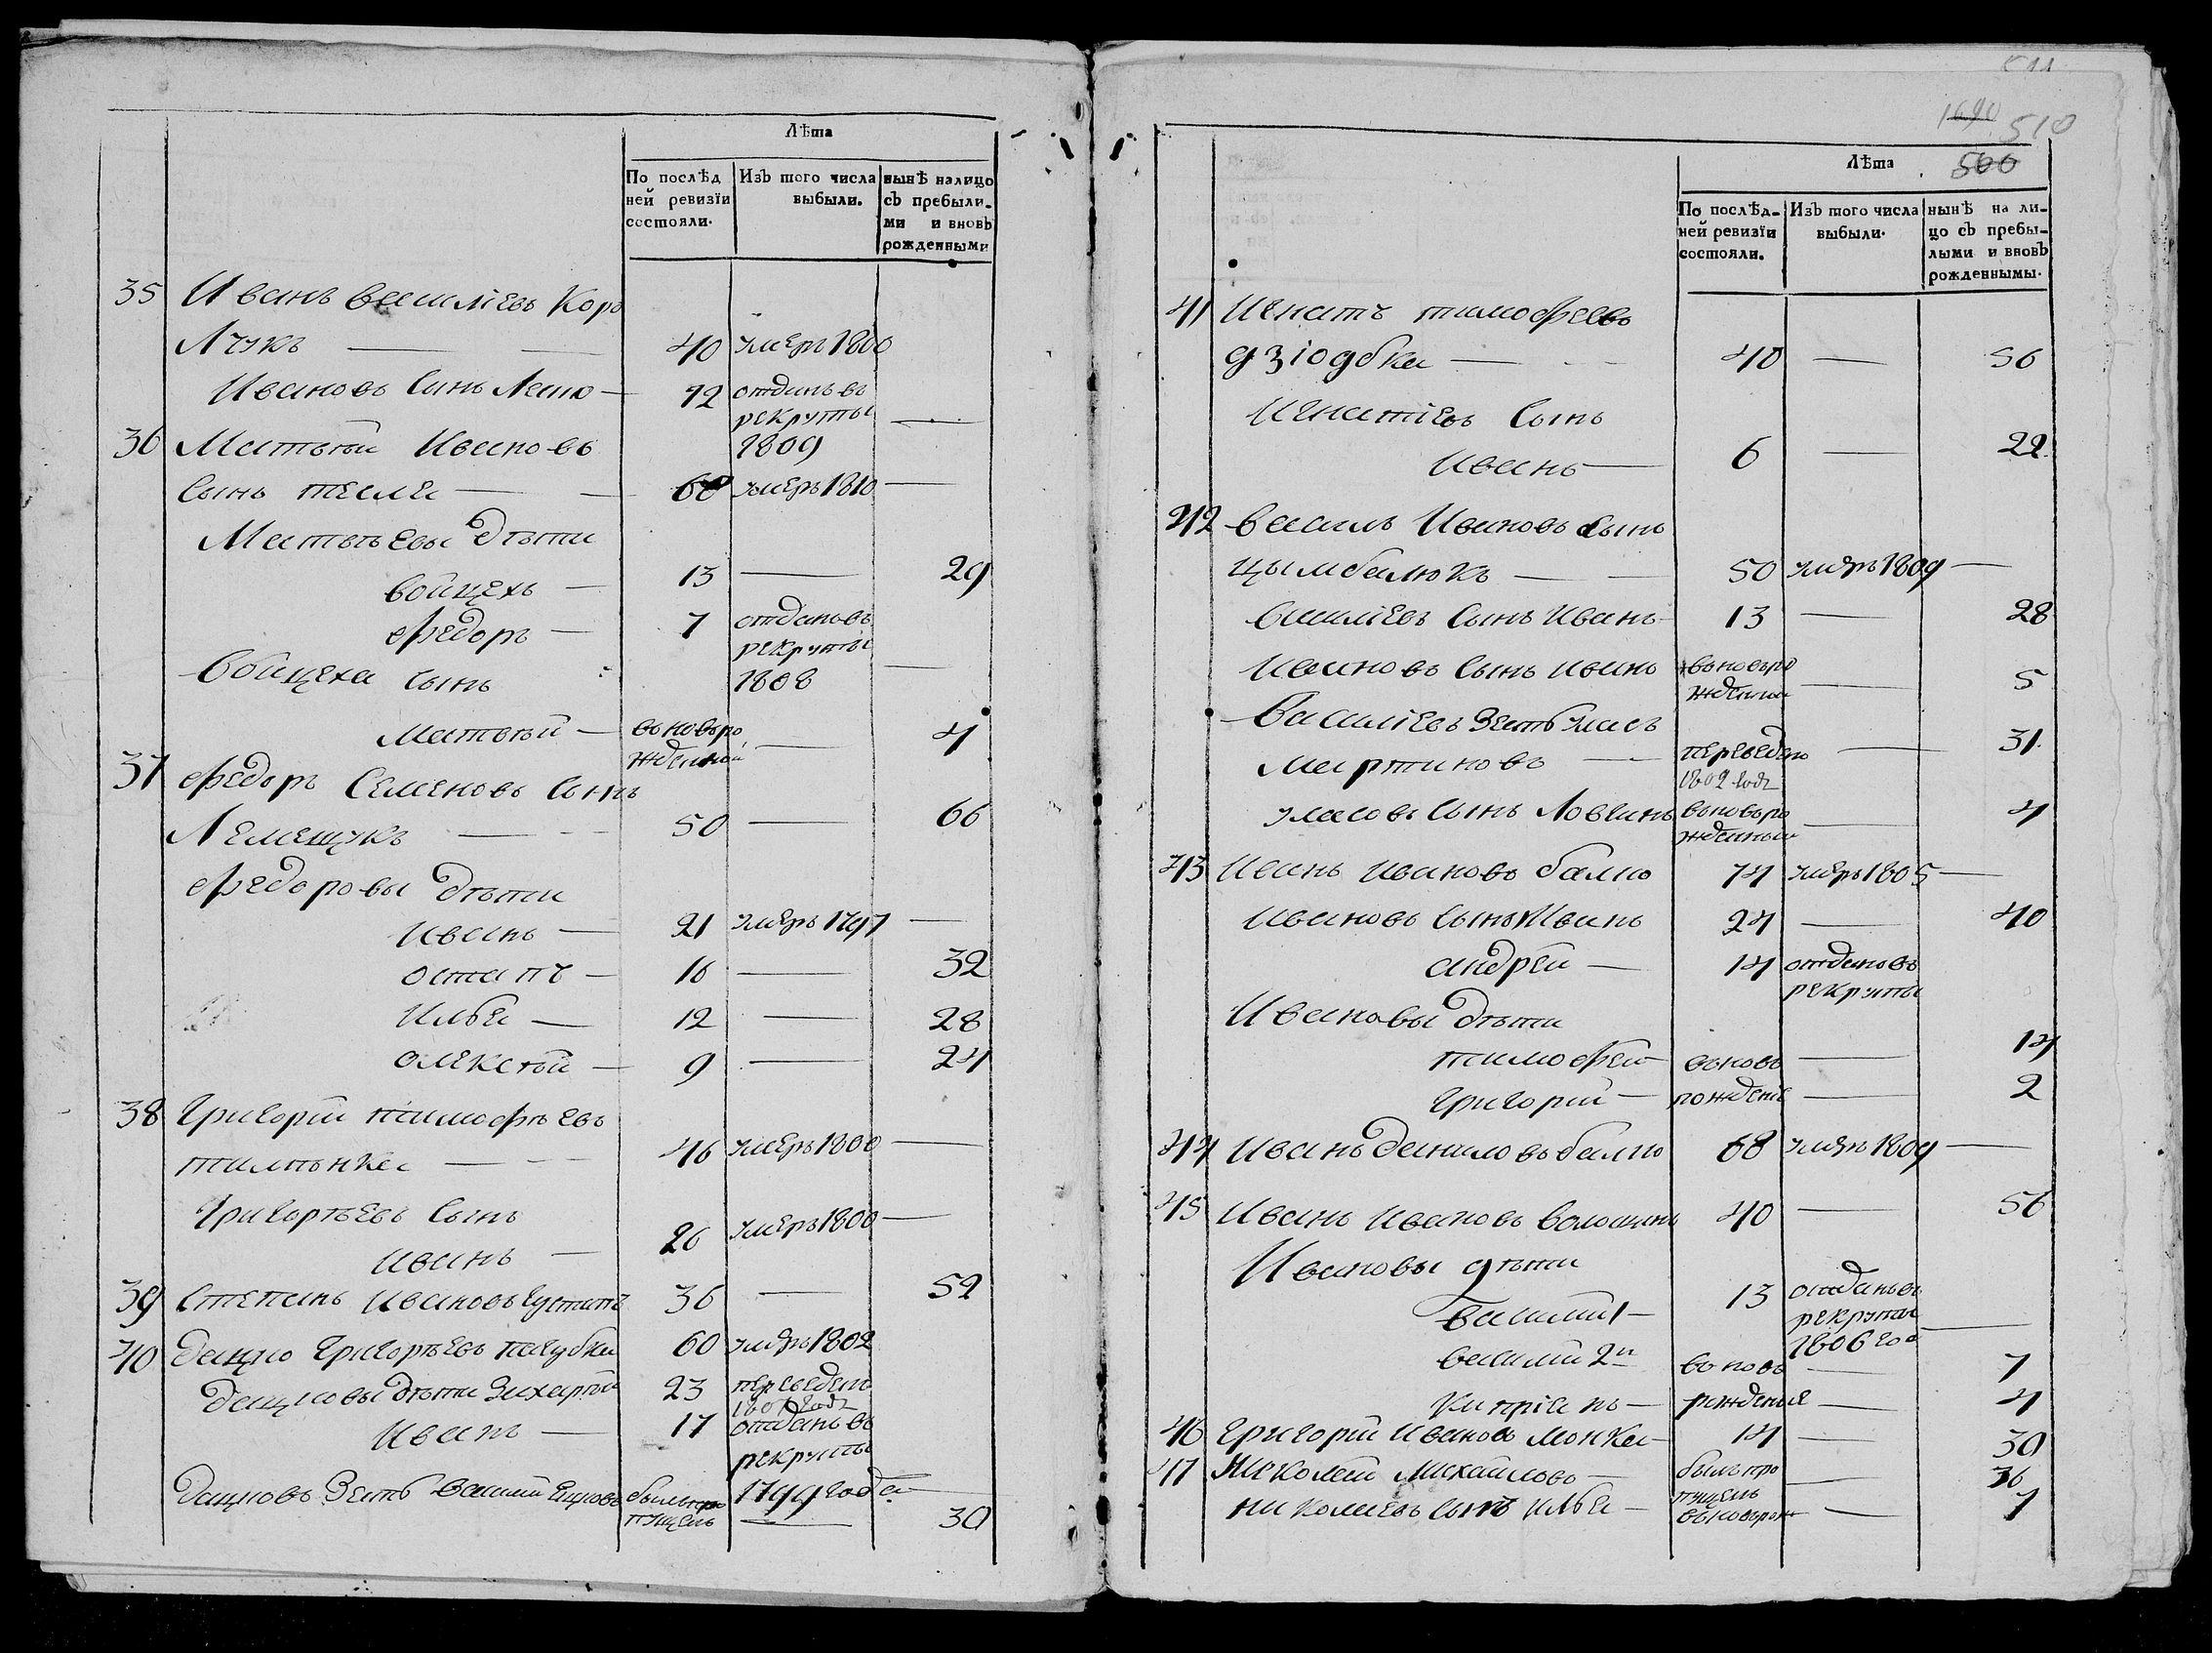 Лѣта
По послѣд
ней ревизїи
состояли.
Изъ того числа
выбыли.
нынѣ налицо
съ пребыли-
ми и вновь
рожденными
35 Иванъ василіевъ Кор
Лчукъ — — 40 умеръ 1800
Ивановъ Синъ Леско — 12 отданъ въ
рекруты —
1809
36 Матвѣй Ивановъ
Сынъ тесля — — 68 умеръ 1810 —
Матвѣевы Дѣти
войцехъ — 13 — 29
Федоръ — 7 отданъ въ
рекруты
1808 —
Войцеха Сынъ
Матвѣй — вновь ро
жденной — 4
37 Федоръ Семеновъ Сынъ
Лемещукъ — — 50 — 66
Федоровы Дѣти
Иванъ — 21 умеръ 1797 —
остапъ — 16 — 32
Илья — 12 — 28
олексѣй — 9 — 24
38 Григорій тимофѣевъ
— — 46 умеръ 1800 —
Григорьевъ Сынъ
Иванъ — 26 умеръ 1800 —
39 Степанъ Ивановъ 36 — 52
40 дацко Григорьевъ 60 умеръ 1802
дацковы дѣти Захарій 23 переведенъ
1807 года
Иванъ — 17 отданъ въ
рекруты
1799 года —
Дацковъ Зять Василій былъ про
пущенъ — 30
511
1690 510
500
Лѣта
По послѣд-
ней ревизїи
состояли.
Изъ того числа
выбыли.
нынѣ на ли-
цо съ пребы-
лыми и вновь
рожденнымы.
41 Игнатъ тимофеевъ
дзіодбка — — 40 — 56
Игнатіевъ Сынъ
Иванъ — 6 — 22
42 василь Ивановъ Сынъ
цымбалюкъ — — 50 умеръ 1809 —
василіевъ Сынъ Иванъ — 13 — 28
Ивановъ Сынъ иванъ вновь ро
жденный — 5
Василіевъ Зять Уласъ
Мартиновъ — переведенъ
1802 года — 31
Уласовъ Сынъ Ловринъ вновь ро
жденный — 4
43 Иванъ Ивановъ балко 74 умеръ 1805 —
Ивановъ Сынъ Иванъ 24 — 40
андрей — 14 отданъ въ
рекруты
Ивановы Дѣти
тимофей — вновь — 14
Григорій — рожденіе — 2
44 Иванъ даниловъ балко 68 умеръ 1809 —
45 Иванъ Ивановъ Волошинъ 40 — 56
Ивановы дѣти
Василий 1 — 13 отданъ въ
рекруты
1806 год —
василий 2й вновь — 7
Кипріянъ — рожденые — 4
46 Григорій Ивановъ Монка — 14 — 30
47 Николай Михайловъ — былъ про
пущенъ — 36
николаевъ сынъ Илья — вновь рож — 7